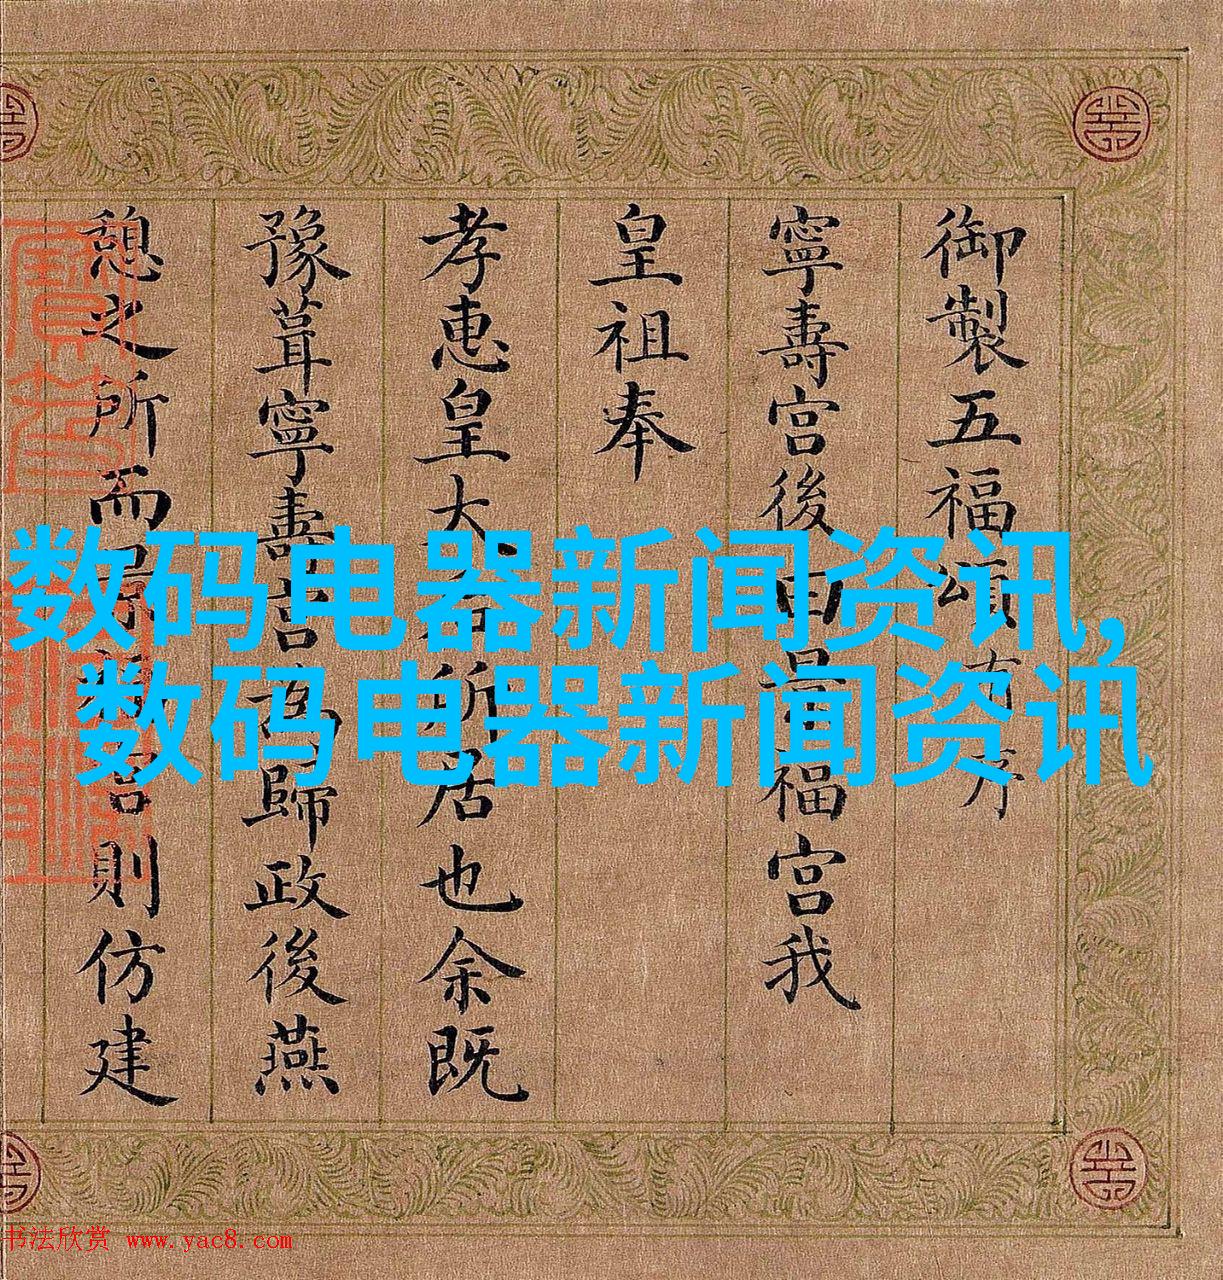 御製五福頌有序
寧壽宫後曰景福宫我
皇祖奉
孝惠皇太后所居也余既
豫葺寧壽宫為歸政後燕
憩之所而景福宫則仿建
数码电器新闻资讯,
数码电器新闻资讯
书法欣赏 www.yac8.com